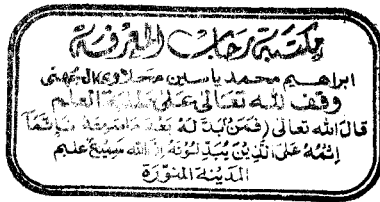 مكتبة رحاب المعرفة
ابراهيم محمد ياسين
وقف لله تعالى على طلبة العلم
قال الله تعالى (فمن بدله بعد ما سمعه فإنما
إثمه على الذين يبدلونه إن الله سميع عليم
المدينة المنورة